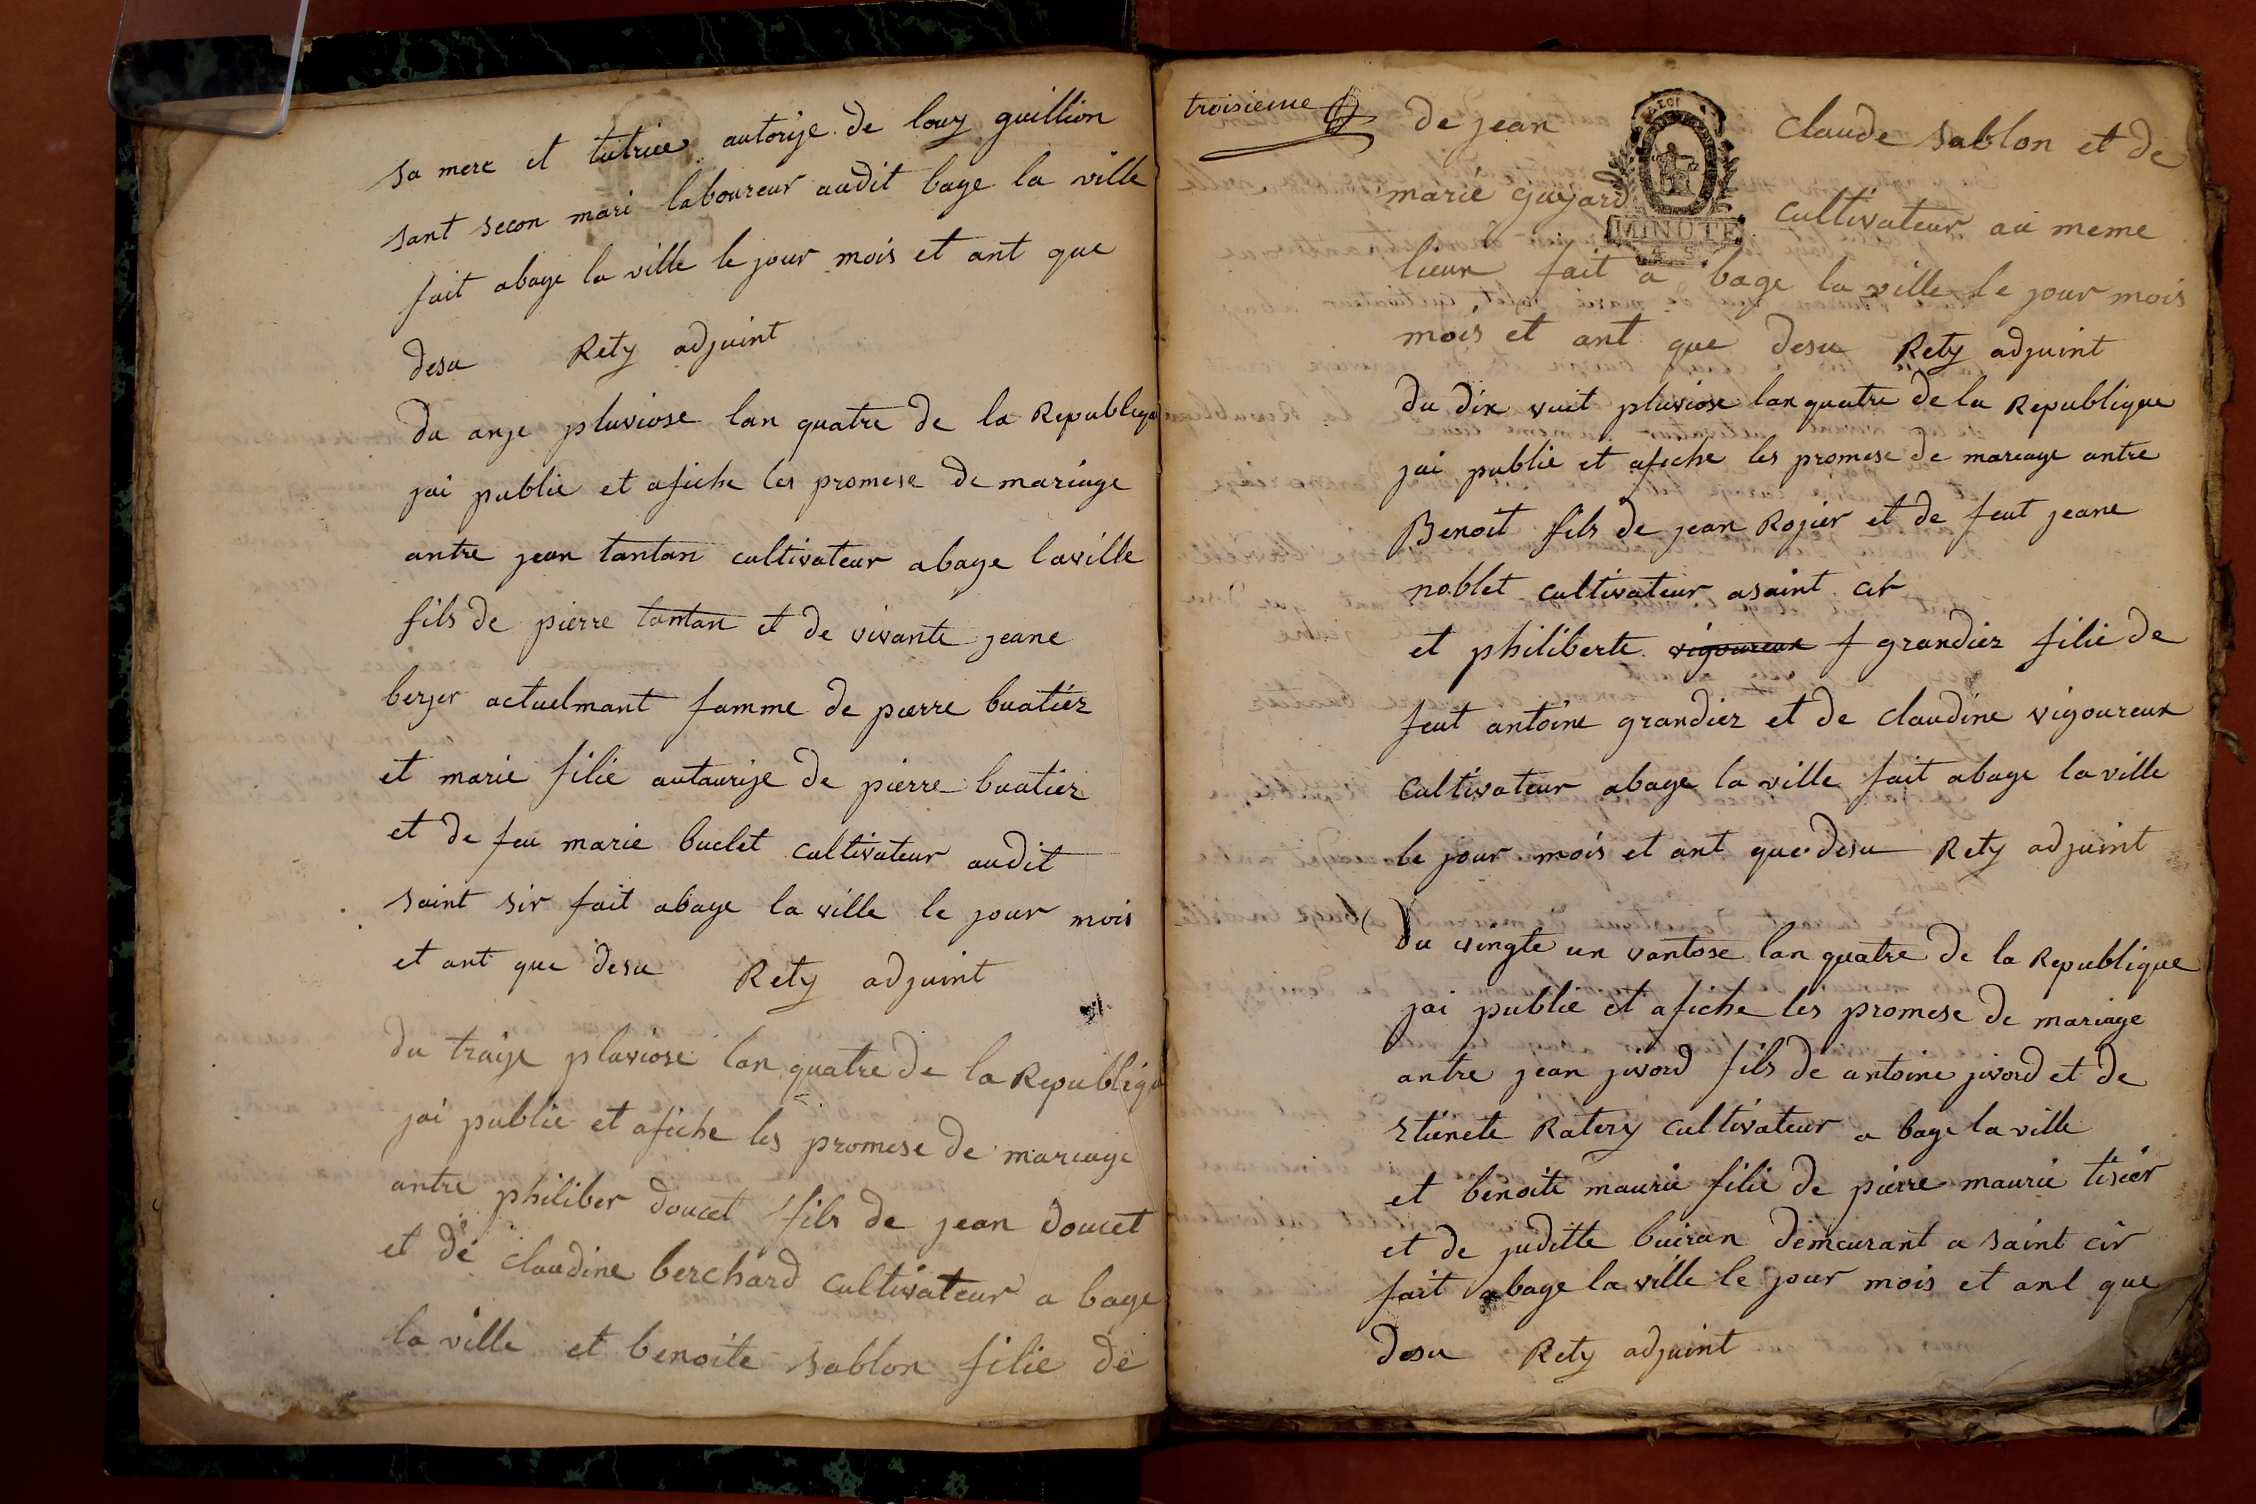 sa mere et tutrice autorise de louy guillion
sant secon mari laboureur audit bage la ville
fait abage la ville le jour mois et ant que
desu Rety adjuint
du onze pluviose lan quatre de la Republique
jai publie et afiche les promese de mariage
antre jean tantan cultivateur abage laville
fils de pierre tantan et de vivante jeane
berger actuelmant famme de pierre buatier
et marie filie autaurise de pierre buatier
et de feu marie buclet cultivateur audit
saint sir fait abage la ville le jour mois
et ant que desu Rety adjuint
du traize pluviose lan quatre de la Republique
jai publie et afiche les promese de mariage
antre philiber doucet fils de jean doucet
et de claudine berchard cultivateur a bage
la ville et benoite sablon filie de
troisieme
de jean claude sablon et de
marie guyard cultivateur au meme
lieux fait a bage la ville le jour mois
mois et ant que desu Rety adjuint
du dix vuit pluviose lan quatre de la Republique
jai publie et afiche les promese de mareage antre
Benoit fils de jean Rozier et de feut jeane
noblet cultivateur asaint cir
et philiberte vigoureux f grandier filie de
feut antoine grandier et de claudine vigoureux
cultivateur abage la ville fait abage laville
le jour mois et ant que desu Rety adjuint
Du vingte un vantose lan quatre de la Republique
jai publie et afiche les promese de mariage
antre jean jivord fils de antoine jivord et de
Etienete Ratery cultivateur a bage la ville
et benoite maurie filie de pierre maurie tisier
et de juditte buiron demeurant a saint cir
fait abage la ville le jour mois et ant que
desu Rety adjuint
LOI
MINUTE